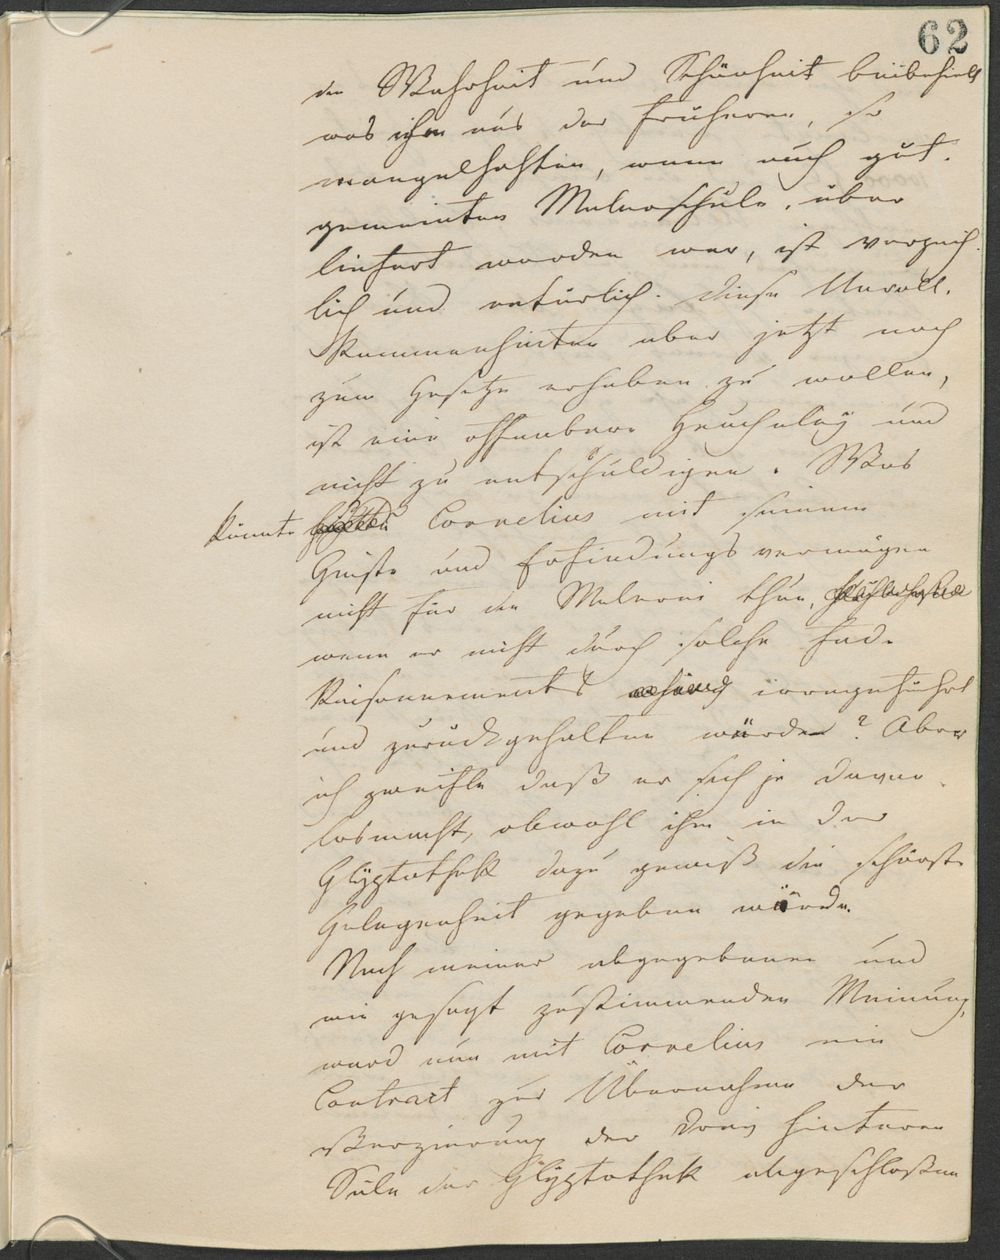 62
der Wahrheit und Schönheit beibehielt
was ihm aus der früheren, so
mangelhaften, wenn auch gut-
gemeinten Malerschule, über
liefert worden war, ist verzeih-
lich und natürlich. Diese Unvoll-
kommenheiten aber jetzt noch
zum Gesetze erheben zu wollen,
ist eine offenbare Heucheley und
nicht zu entschuldigen. Was
könnte Cornelius mit seinem
Geiste und Erfindungsvermögen
nicht für die Malerei thun,
wenn er nicht durch solche fade
Raisonnements irregeführt
und zurückgehalten würde? Aber
ich zweifle daß er sich je davon
losmacht, obwohl ihm in der
Glyptothek dazu gewiß die schönste
Gelegenheit gegeben würde.
Nach meiner abgegebenen und
wie gesagt zustimmenden Meinung,
ward nun mit Cornelius ein
Contract zur Übernahme der
Verzierung der drei hinteren
Säle der Glyptothek abgeschloßen